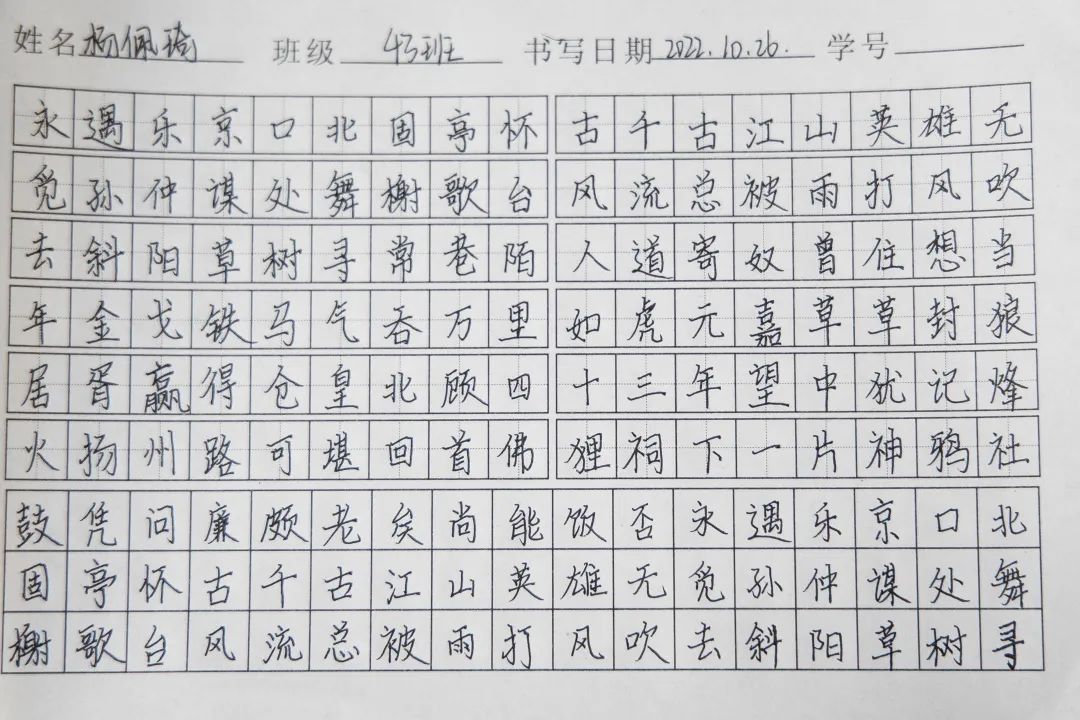 姓名 杨佩琦 班级 43班 书写日期 2022.10.26. 学号
永遇乐京口北固亭怀古千古江山英雄无
觅孙仲谋处舞榭歌台风流总被雨打风吹
去斜阳草树寻常巷陌人道寄奴曾住想当
年金戈铁马气吞万里如虎元嘉草草封狼
居胥赢得仓皇北顾四十三年望中犹记烽
火扬州路可堪回首佛狸祠下一片神鸦社
鼓凭问廉颇老矣尚能饭否永遇乐京口北
固亭怀古千古江山英雄无觅孙仲谋处舞
榭歌台风流总被雨打风吹去斜阳草树寻